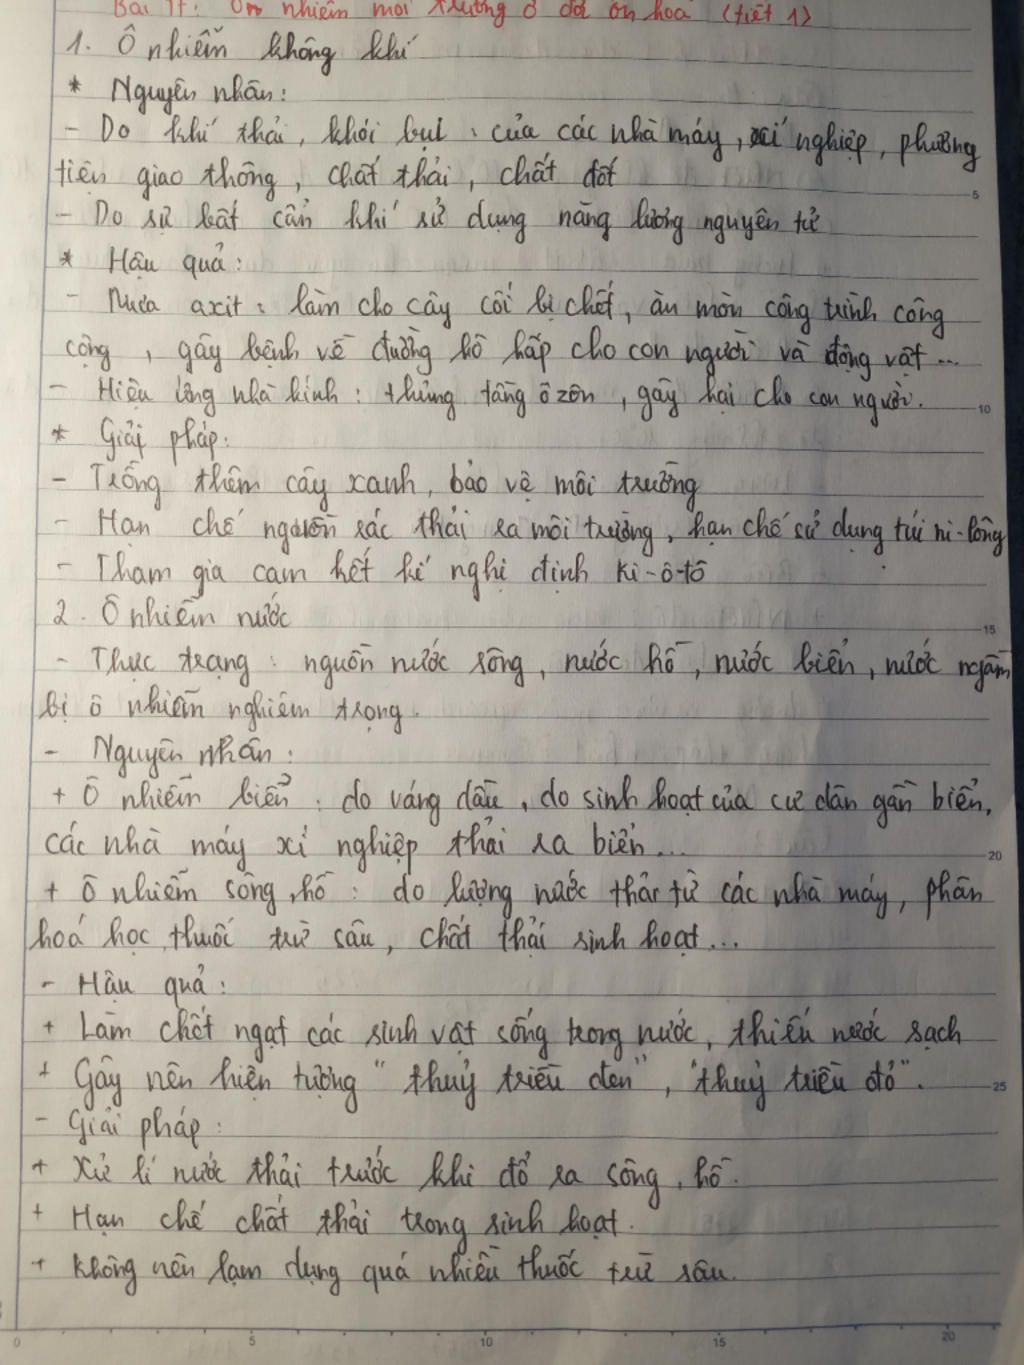 Bài 17: Ôn nhiễm môi trường ở đới ôn hoà (tiết 1)
1. Ô nhiễm không khí
* Nguyên nhân:
- Do khí thải, khói bụi : của các nhà máy, xí nghiệp, phương
tiện giao thông, chất thải, chất đốt
- Do sự bất cẩn khi sử dụng năng lượng nguyên tử
* Hậu quả:
- Mưa axit : làm cho cây cối bị chết, ăn mòn công trình công
cộng, gây bệnh về đường hô hấp cho con người và động vật...
- Hiệu ứng nhà kính : thủng tầng ôzôn, gây hại cho con người.
10
* Giải pháp:
- Trồng thêm cây xanh, bảo vệ môi trường
- Hạn chế nguồn rác thải ra môi trường, hạn chế sử dụng túi ni-lông
- Tham gia cam kết kí nghị định Ki-ô-tô
2. Ô nhiễm nước
15
- Thực trạng : nguồn nước sông, nước hồ, nước biển, nước ngầm
bị ô nhiễm nghiêm trọng.
- Nguyên nhân :
+ Ô nhiễm biển : do váng dầu, do sinh hoạt của cư dân gần biển,
các nhà máy xí nghiệp thải ra biển...
20
+ Ô nhiễm sông, hồ : do lượng nước thải từ các nhà máy, phân
hoá học, thuốc trừ sâu, chất thải sinh hoạt...
- Hậu quả :
+ Làm chết ngạt các sinh vật sống trong nước, thiếu nước sạch
+ Gây nên hiện tượng "thuỷ triều đen", "thuỷ triều đỏ".
25
- Giải pháp :
+ Xử lí nước thải trước khi đổ ra sông, hồ.
+ Hạn chế chất thải trong sinh hoạt.
+ Không nên lạm dụng quá nhiều thuốc trừ sâu.
0 5 10 15 20